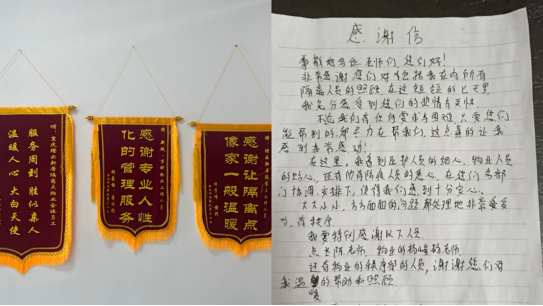 服务周到 胜似亲人
温暖人心 大白天使
感谢专业人性
化的管理服务
感谢让隔离点
像家一般温暖
感谢信
尊敬的各位老师们,您们好!
非常感谢您们对包括我在内所有
隔离人员的照顾,在这短短的七天里
我充分感受到您们的热情与友好。
不论我们有任何要求与困难,只要您们
能帮到的,都尽力在帮我们,这点真的让我
感到非常感动!
在这里,我看到医护人员的细心,物业人员
的贴心,还有防疫人员的关心,在您们各部
门协调安排下,使得我们感到十分安心。
大大小小,方方面面的问题都处理地非常妥善
与有秩序
我要特别感谢以下人员
点长陈老师、物业的杨老师
还有物业的秩序部的人员,谢谢您们对
我温暖的帮助和照顾